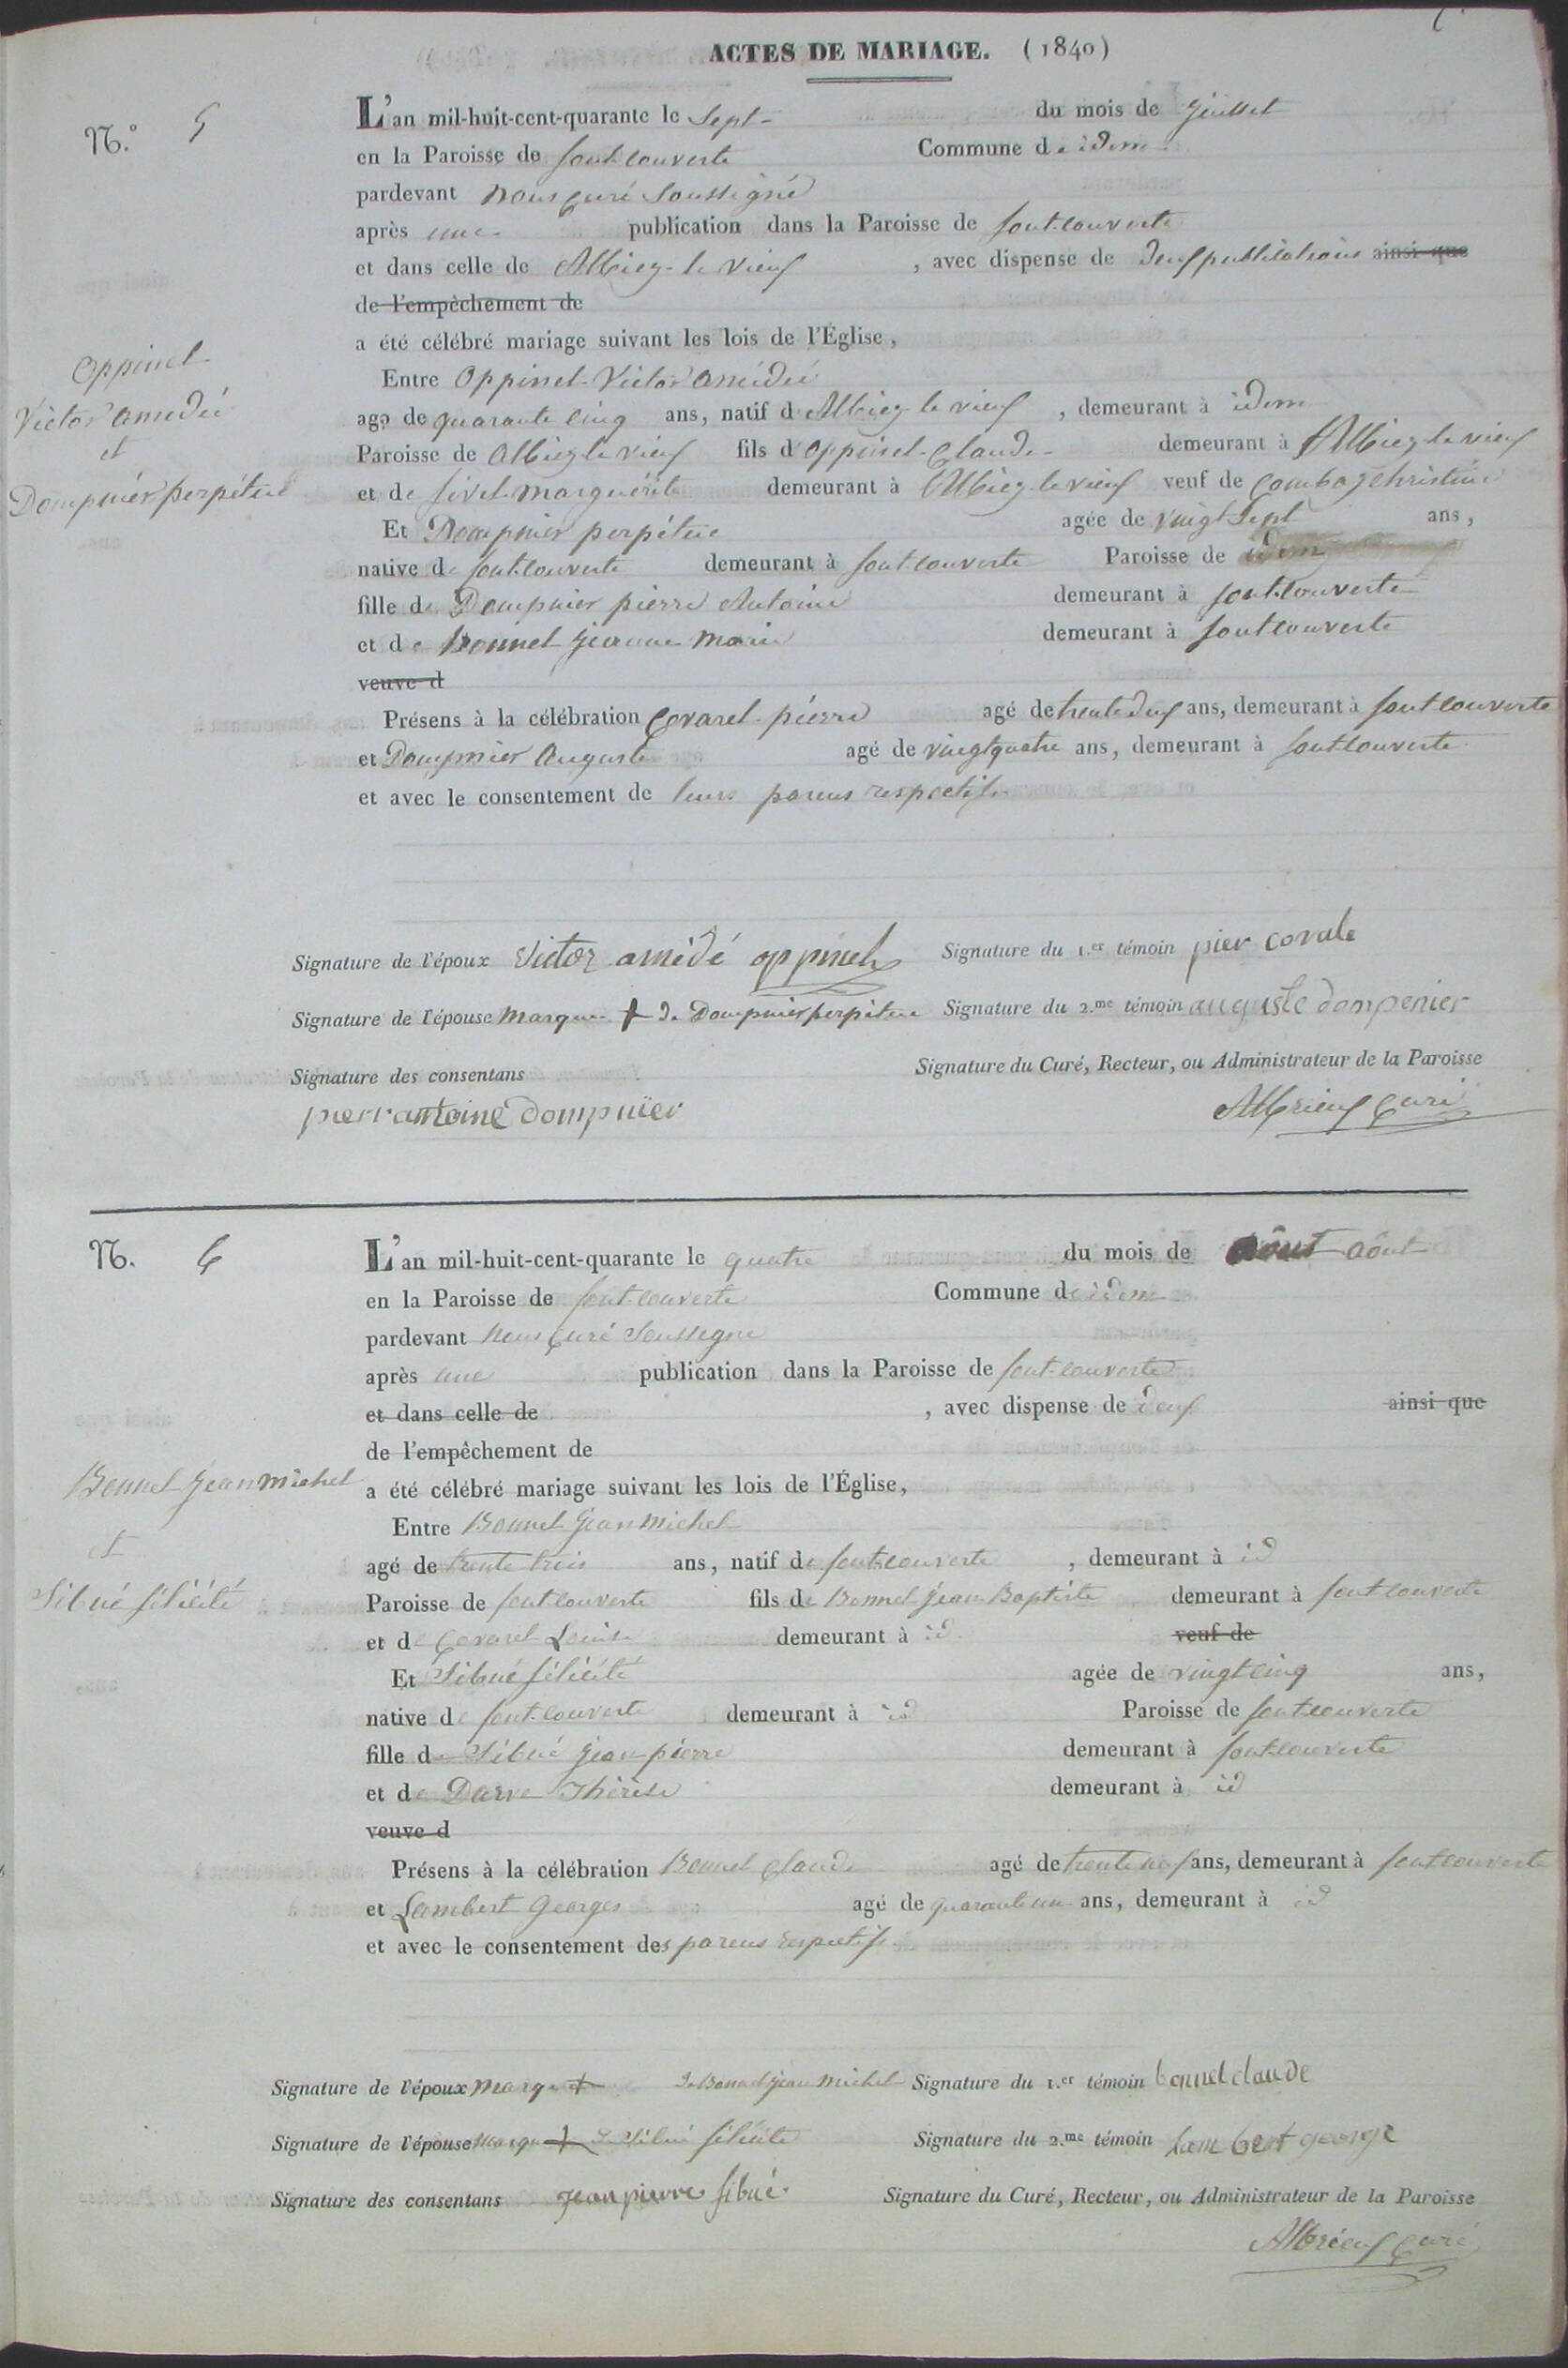 ACTES DE MARIAGE. (1840)
N.º 5
L'an mil-huit-cent-quarante le Sept du mois de Juillet
en la Paroisse de fontcouverte Commune de idem
pardevant nous curé soussigné
après une publication dans la Paroisse de fontcouverte
et dans celle de Albiez-le vieux, avec dispense de deux publications ainsi que
de l'empêchement de
a été célébré mariage suivant les lois de l'Église,
Oppinel
Victor amédéé
et
Dompnier perpétue
Entre Oppinel Victor amédéé
agé de quarante cinq ans, natif d Albiez le vieux, demeurant à idem
Paroisse de Albiez le vieux fils d'oppinel Claude demeurant à Albiez le vieux
et de sivel Marguérite demeurant à Albiez le vieux veuf de Combaz christine
Et Dompnier perpétue agée de vingt sept ans,
native de fontcouverte demeurant à fontcouverte Paroisse de idem
fille de Dompnier pierre Antoine demeurant à fontcouverte
et de Bonnel Jeanne Marie demeurant à fontcouverte
veuve d
Présens à la célébration Covarel pierre agé de trente deux ans, demeurant à fontcouverte
et Dompnier Auguste agé de vingtquatre ans, demeurant à fontcouverte
et avec le consentement de leurs parens respectifs
Signature de l'époux Victor amédé oppinel Signature du 1.er témoin pier covale
Signature de l'épouse marque + de Dompnier perpétue Signature du 2.me témoin auguste dompenier
Signature des consentans Signature du Curé, Recteur, ou Administrateur de la Paroisse
pierr antoine dompnier Albrieux curé
N. 6
L'an mil-huit-cent-quarante le quatre du mois de août août
en la Paroisse de fontcouverte Commune de idem
pardevant nous curé soussigné
après une publication dans la Paroisse de fontcouverte
et dans celle de , avec dispense de deux ainsi que
de l'empêchement de
a été célébré mariage suivant les lois de l'Église,
Bonnel Jean michel
et
Sibué félicité
Entre Bonnel Jean michel
agé de trente trois ans, natif de fontcouverte, demeurant à id
Paroisse de fontcouverte fils de Bonnel Jean Baptiste demeurant à fontcouverte
et de Covarel Louise demeurant à id veuf de
Et Sibué félicité agée de vingt cinq ans,
native de fontcouverte demeurant à id Paroisse de fontcouverte
fille de Sibué Jean pierre demeurant à fontcouverte
et de Darve Thérèse demeurant à id
veuve d
Présens à la célébration Bonnel Claude agé de trente neuf ans, demeurant à fontcouverte
et Lambert Georges agé de quarante un ans, demeurant à id
et avec le consentement des parens respectifs
Signature de l'époux marque + de Bonnel Jean Michel Signature du 1.er témoin bonnel claude
Signature de l'épouse marque + de Sibué félicité Signature du 2.me témoin lambert george
Signature des consentans Jean pierre sibué Signature du Curé, Recteur, ou Administrateur de la Paroisse
Albrieux curé